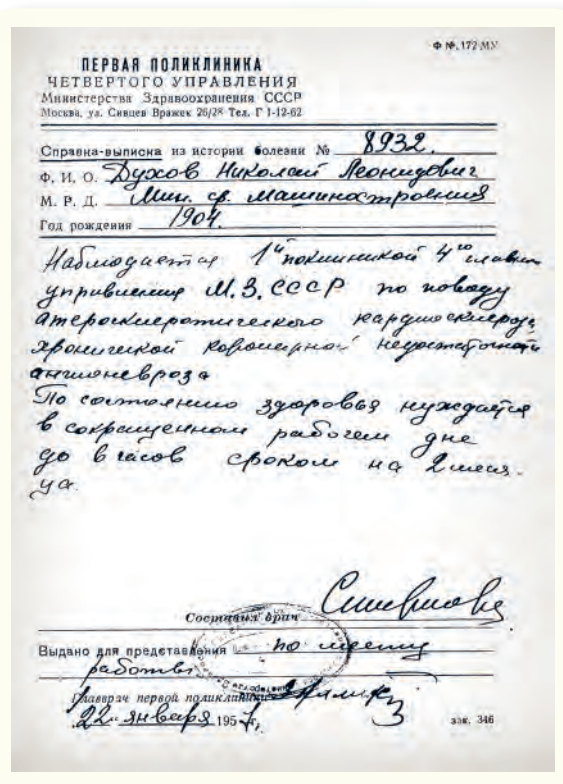 Ф №. 172 МУ
ПЕРВАЯ ПОЛИКЛИНИКА
ЧЕТВЕРТОГО УПРАВЛЕНИЯ
Министерства Здравоохранения СССР
Москва, ул. Сивцев Вражек 26/28 Тел. Г 1-12-62
Справка-выписка из истории болезни № 8932.
Ф. И. О. Духов Николай Леонидович
М. Р. Д. Мин. ср. Машиностроения
Год рождения 1904.
Наблюдается 1й поликлиникой 4го главн
управления М.З. СССР по поводу
атеросклеротического кардиосклероза,
хронической коронарной недостаточности
ангионевроза
По состоянию здоровья нуждается
в сокращенном рабочем дне
до 6 часов сроком на 2 меся-
ца.
Составил врач Смирнова
Выдано для представления по месту
работы
Главврач первой поликлиники
22 января 1957 г,
зак. 346